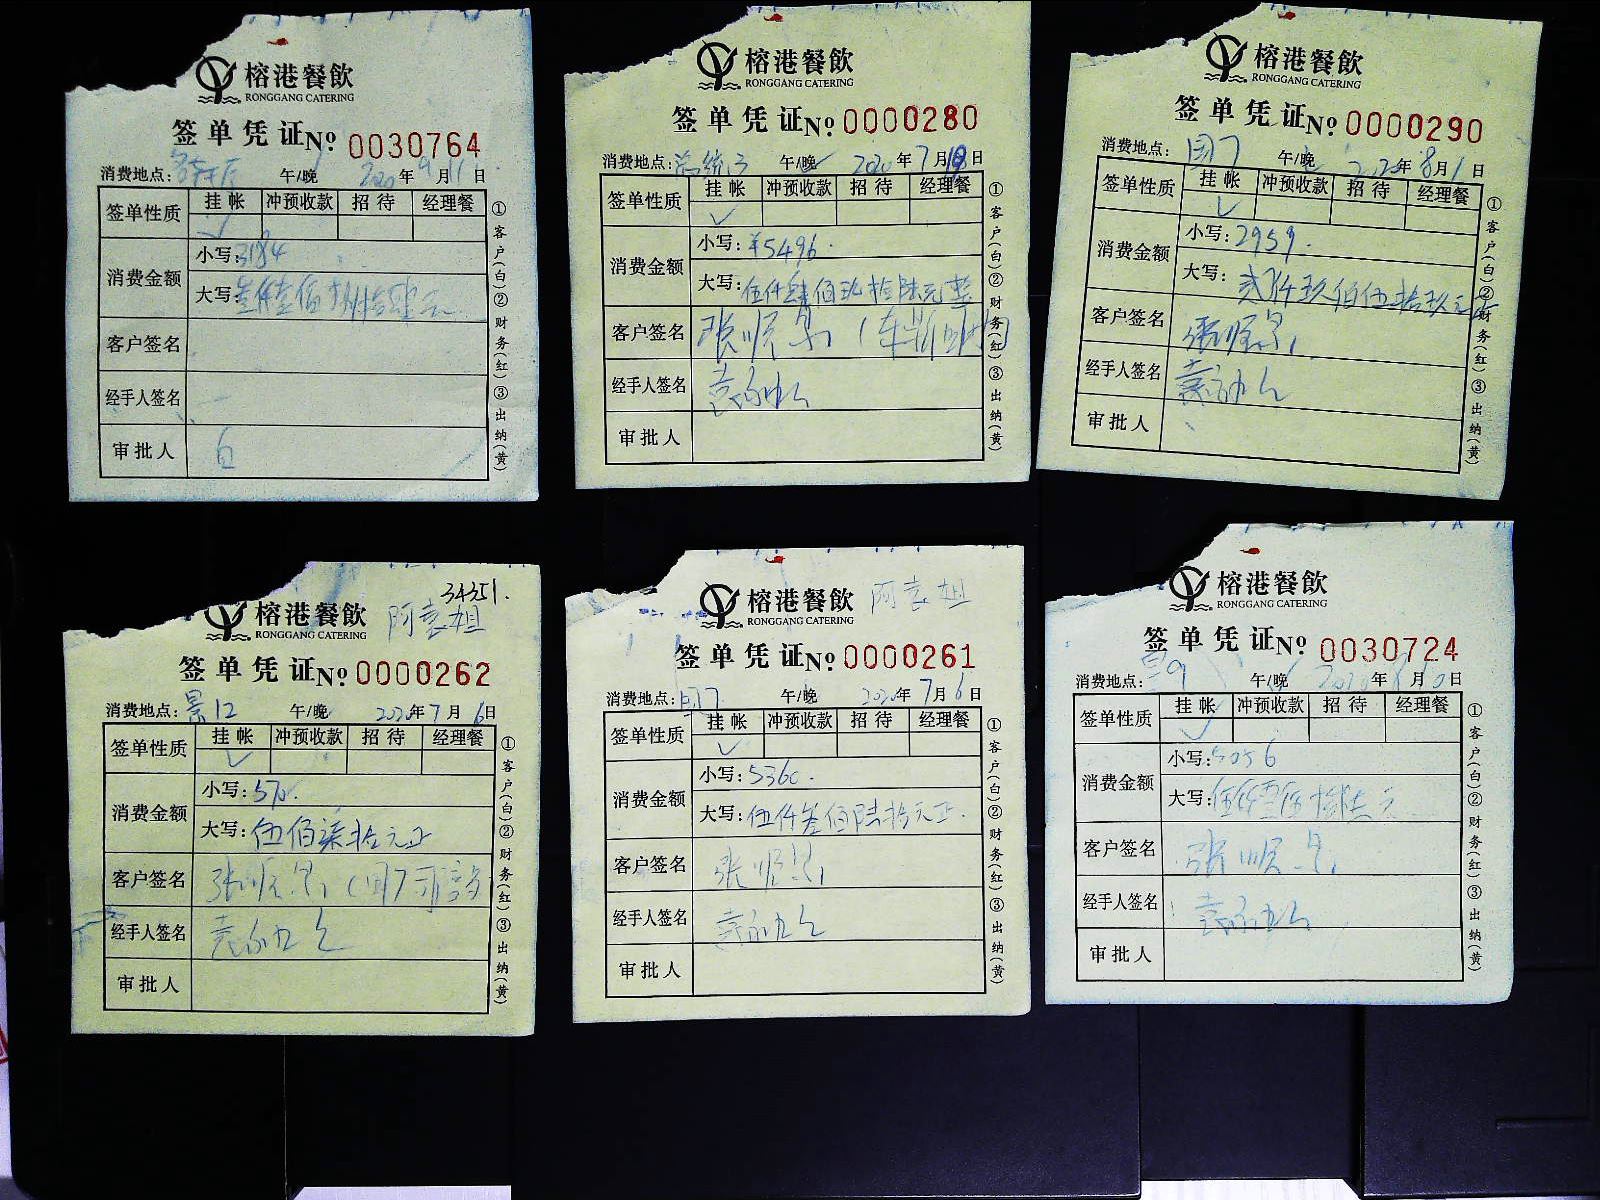 榕港餐飲
RONGGANG CATERING
签单凭证 № 0030764
消费地点: 午/晚 2020年9月11日
签单性质 挂帐 冲预收款 招待 经理餐
✓
消费金额 小写: 3184
大写:
客户签名
经手人签名
审批人
①客户(白)②财务(红)③出纳(黄)
榕港餐飲
RONGGANG CATERING
签单凭证 № 0000280
消费地点: 总统3 午/晚 2020年7月18日
签单性质 挂帐 冲预收款 招待 经理餐
✓
消费金额 小写: ¥5496.
大写: 伍仟肆佰玖拾陆元整
客户签名 张顺
经手人签名 袁
审批人
①客户(白)②财务(红)③出纳(黄)
榕港餐飲
RONGGANG CATERING
签单凭证 № 0000290
消费地点: 国7 午/晚 2020年8月1日
签单性质 挂帐 冲预收款 招待 经理餐
✓
消费金额 小写: 2959.
大写: 贰仟玖佰伍拾玖元
客户签名 张顺
经手人签名 袁
审批人
①客户(白)②财务(红)③出纳(黄)
34351.
榕港餐飲 阿袁姐
RONGGANG CATERING
签单凭证 № 0000262
消费地点: 景12 午/晚 2020年7月6日
签单性质 挂帐 冲预收款 招待 经理餐
✓
消费金额 小写: 570.
大写: 伍佰柒拾元正
客户签名 张顺
经手人签名 袁
审批人
①客户(白)②财务(红)③出纳(黄)
榕港餐飲 阿袁姐
RONGGANG CATERING
签单凭证 № 0000261
消费地点: 国7 午/晚 2020年7月6日
签单性质 挂帐 冲预收款 招待 经理餐
✓
消费金额 小写: 5360.
大写: 伍仟叁佰陆拾元正.
客户签名 张顺
经手人签名 袁
审批人
①客户(白)②财务(红)③出纳(黄)
榕港餐飲
RONGGANG CATERING
签单凭证 № 0030724
消费地点: 午/晚 2020年 月 日
签单性质 挂帐 冲预收款 招待 经理餐
✓
消费金额 小写: 5056
大写:
客户签名 张顺
经手人签名 袁
审批人
①客户(白)②财务(红)③出纳(黄)